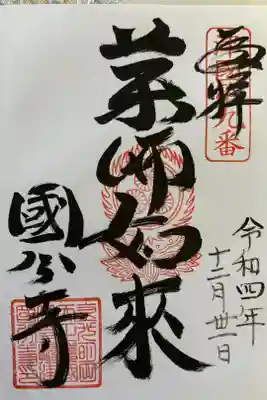 奉拝
九番
令和四年
十二月卅一日
薬師如来
國分寺